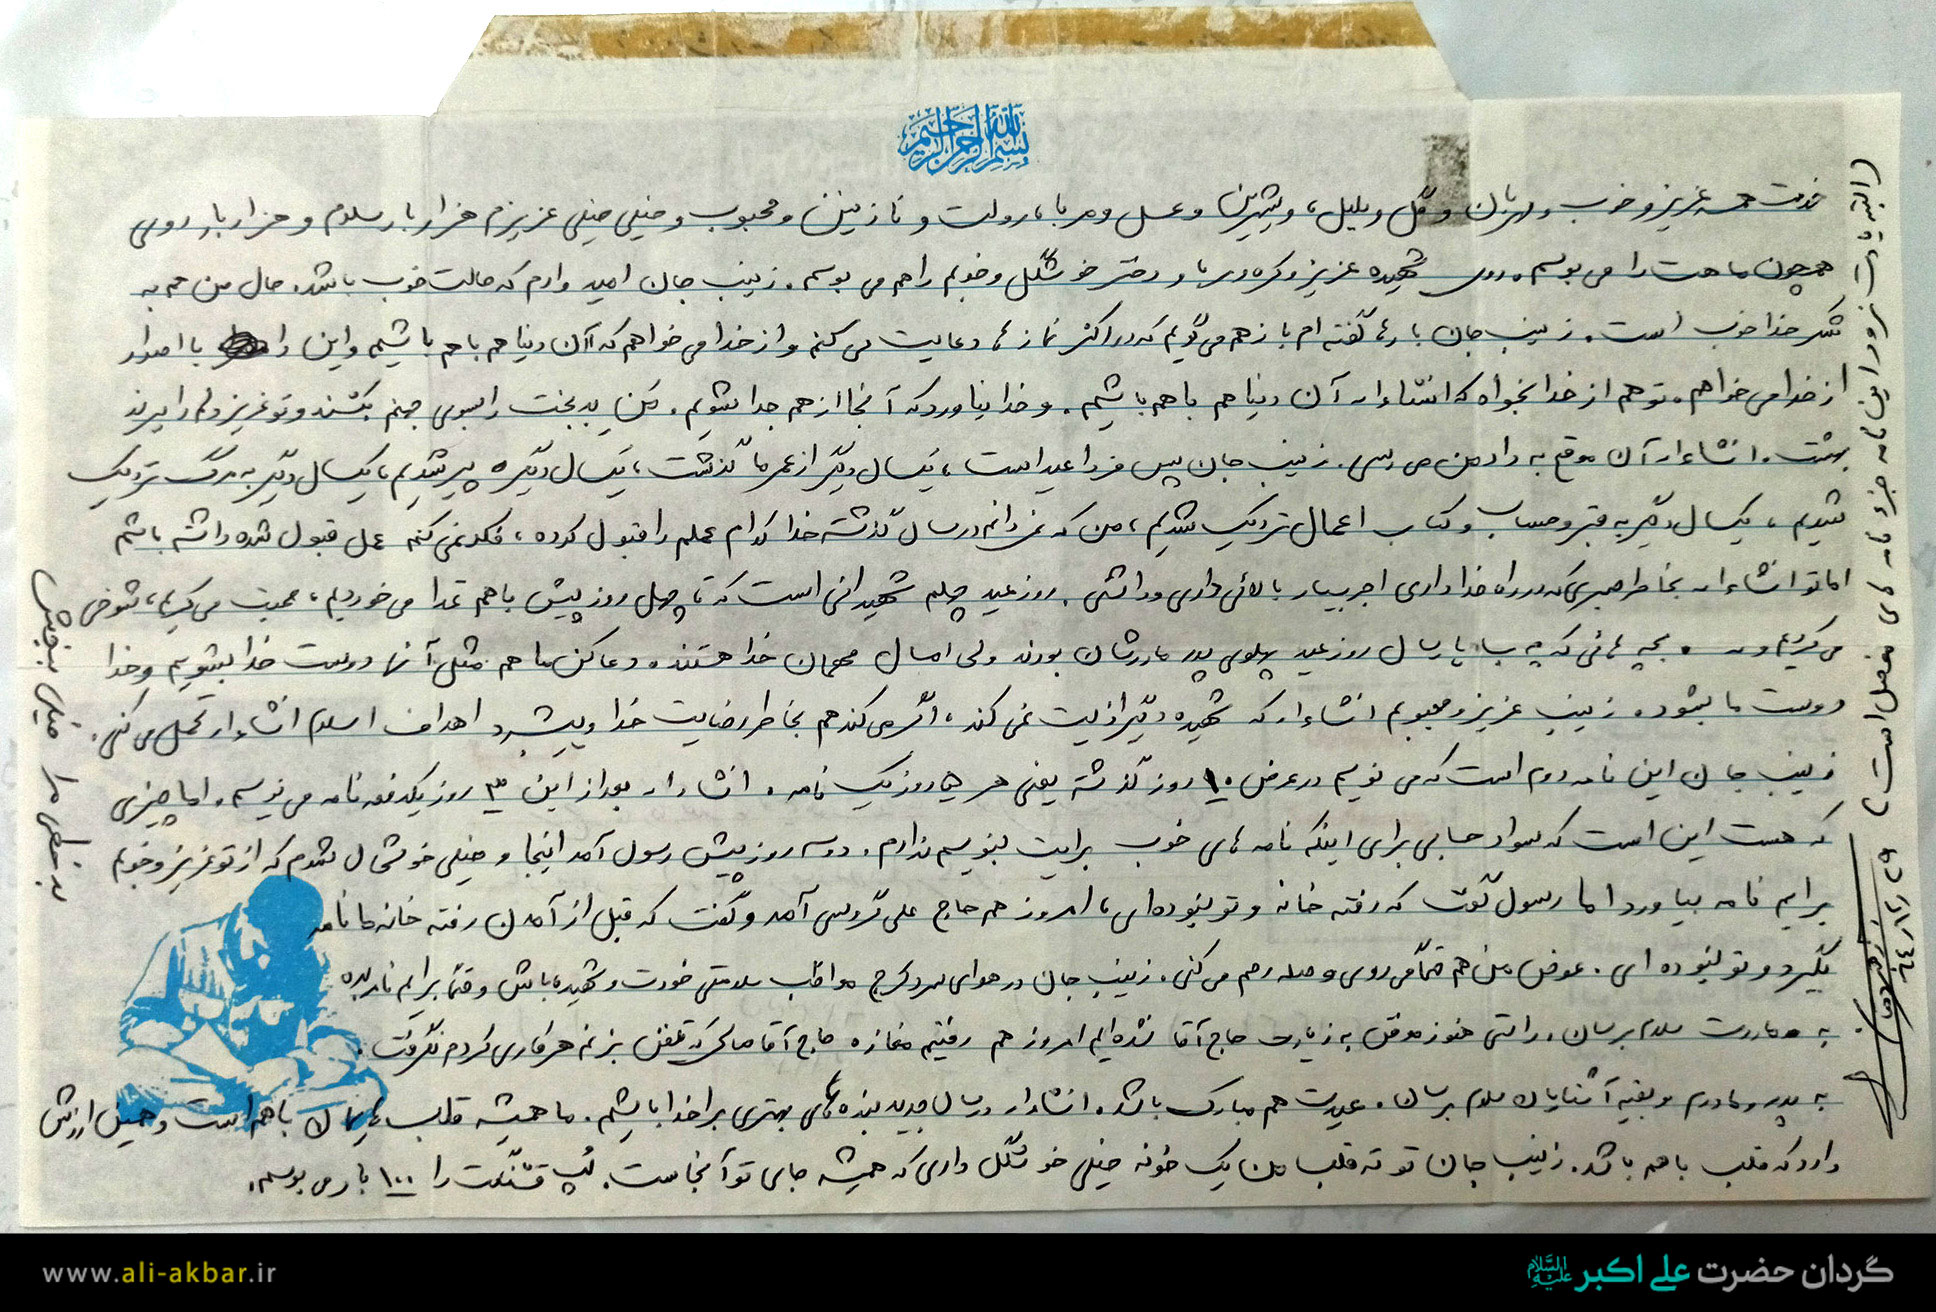 بسم الله الرحمن الرحیم
خدمت همسر عزیز و خوب و مهربان و گل و بلبل، و شیرین و عسل و مربا، و نازنین و محبوب و خیلی خیلی عزیزم هزار بار سلام و هزار بار روی
همچون ماهت را می بوسم. روی شهیده عزیز و کره و مربا و دختر خوشگل و خوبم را هم می بوسم. زینب جان امیدوارم که حالت خوب باشد. حال من هم به
شکر خدا خوب است. زینب جان بارها گفته ام باز هم می گویم که در اکثر نمازها دعایت می کنم و از خدا می خواهم که آن دنیا هم با هم باشیم و این را با اصرار
از خدا می خواهم. تو هم از خدا بخواه که انشاءا... آن دنیا هم با هم باشیم. و خدا نیاورد که آنجا از هم جدا شویم. من بدبخت را بسوی جهنم بکشند و تو عزیز دلم را ببرند
بهشت. انشاءا... آن موقع به داد من می رسی. زینب جان پس فردا عید است، یکسال دیگر از عمر ما گذشت، یکسال دیگر پیر شدیم، یکسال دیگر به مرگ نزدیک
شدیم، یکسال دیگر به قبر و حساب و کتاب اعمال نزدیک شدیم، من که نمی دانم در سال گذشته خدا کدام عملم را قبول کرده، فکر نمی کنم عمل قبول شده داشته باشم
اما تو انشاءا... بخاطر صبری که در راه خدا داری اجر بسیار بالائی داری و داشتی. روز عید چهلم شهیدانی است که تا چهل روز پیش با هم غذا می خوردیم، صحبت می کردیم، شوخی
می کردیم و ... . بچه هائی که چه بسا پارسال روز عید پهلوی پدر مادرشان بودند ولی امسال مهمان خدا هستند. دعا کن ما هم مثل آنها دوست خدا بشویم و خدا
دوست ما بشود. زینب عزیز و محبوبم انشاءا... که شهیده دیگر اذیت نمی کند، اگر می کند هم بخاطر رضایت خدا و پیشبرد اهداف اسلام انشاءا... تحمل می کنی.
زینب جان این نامه دوم است که می نویسم در عرض ۱۰ روز گذشته یعنی هر ۵ روز یک نامه. انشاءا... بعد از این ۳ روز یکدفعه نامه می نویسم. اما چیزی
که هست این است که سواد حسابی برای اینکه نامه های خوب برایت بنویسم ندارم. دو سه روز پیش رسول آمد اینجا و خیلی خوشحال شدم که از تو عزیز و خوبم
برایم نامه بیاورد اما رسول گفت که رفته خانه و تو نبوده ای، امروز هم حاج علی آمد و گفت که قبل از آمدن رفته خانه ما نامه
بگیرد و تو نبوده ای. عوض من هم حتما می روی و صله رحم می کنی. زینب جان در هوای سرد کرج مواظب سلامتی خودت و شهیده باش و حتما برایم نامه بده
به مادرت سلام برسان. راستی هنوز موفق به زیارت حاج آقا نشده ایم امروز هم رفتیم مغازه حاج آقا که تلفن بزنم هر کاری کردم نگرفت.
به پدر و مادرم و بقیه آشنایان سلام برسان. عیدت هم مبارک باشد. انشاءا... در سال جدید بنده های بهتری برا خدا باشیم. ما همیشه قلب هایمان با هم است و همین ارزش
دارد که قلب با هم باشد. زینب جان تو ته قلب من یک خونه خیلی خوشگل داری که همیشه جای تو آنجاست. لپ قشنگت را ۱۰۰ بار می بوسم.
(البته یادت نرود این نامه جزء نامه های مفصل است)
۶۴/۱۲/۲۷
بدخطی مرا خیلی ببخش
www.ali-akbar.ir
گردان حضرت علی اکبر علیه السلام